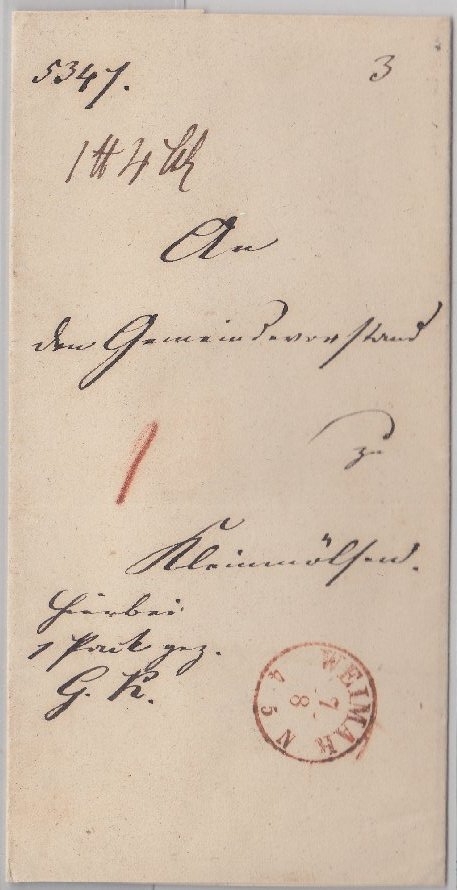 5347. 3
1 ℔ 4 Lth
An
den Gemeindevorstand
zu
Kleinmölsen.
hierbei
1 Pack gez.
G. K.
WEIMAR
7 8
4 5 N